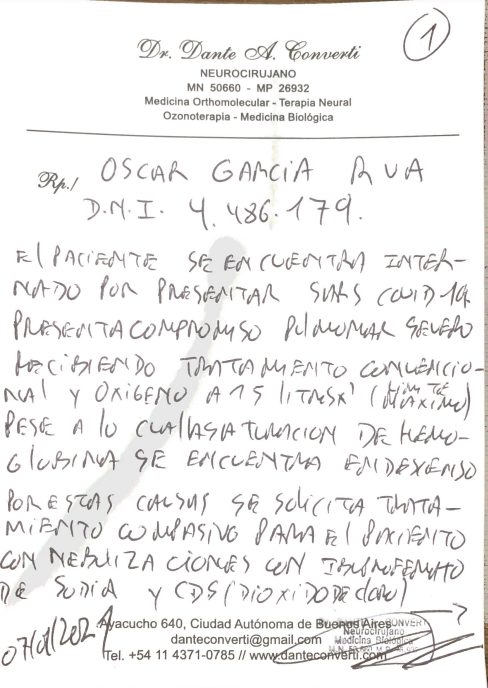 1
Dr. Dante A. Converti
NEUROCIRUJANO
MN 50660 - MP 26932
Medicina Orthomolecular - Terapia Neural
Ozonoterapia - Medicina Biológica
Rp./ OSCAR GARCIA RUA
D.N.I. 4.486.179.
El PACIENTE SE ENCUENTRA INTER-
NADO POR PRESENTAR SARS COVID 19
PRESENTA COMPROMISO PULMONAR SEVERO
RECIBIENDO TRATAMIENTO CONVENCIO-
NAL Y OXIGENO A 15 LITROS X' (LIMITE MAXIMO)
PESE A LO CUAL LA SATURACION DE HEMO-
GLOBINA SE ENCUENTRA EN DEXENSO
POR ESTAS CAUSAS SE SOLICITA TRATA-
MIENTO COMPASIVO PARA El PACIENTE
CON NEBULIZACIONES CON IBUPROFENATO
DE SODIO Y CDS (DIOXIDO DE CLORO)
Ayacucho 640, Ciudad Autónoma de Buenos Aires
danteconverti@gmail.com
Tel. +54 11 4371-0785 // www.danteconverti.com
07/01/2021
CONVERTI
Neurocirujano
Medicina Biológica